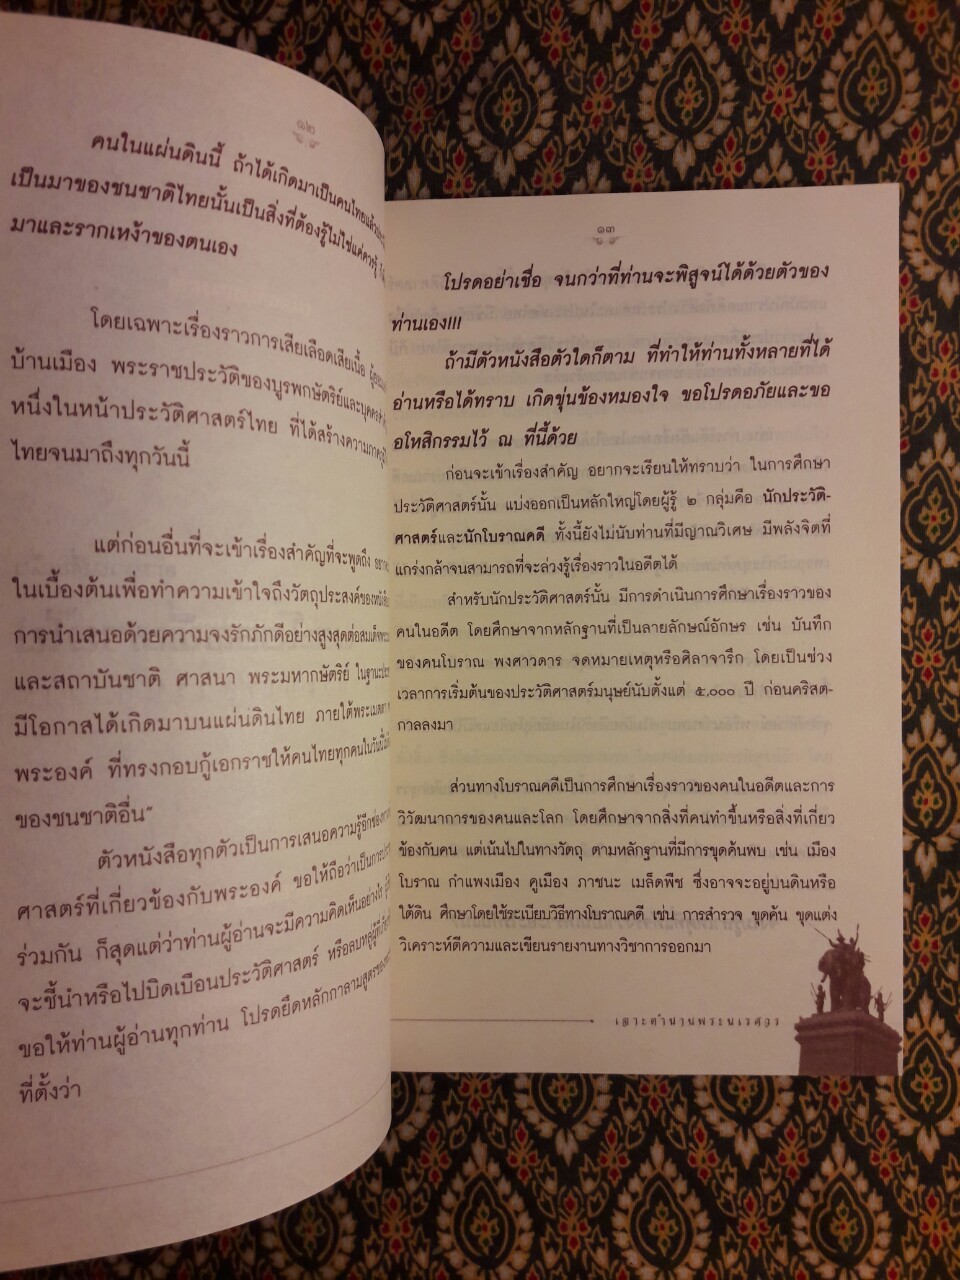 ๑๒
คนในแผ่นดินนี้ ถ้าได้เกิดมาเป็นคนไทยแล้ว
เป็นมาของชนชาติไทยนั้นเป็นสิ่งที่ต้องรู้ไม่ใช่แค่ควรรู้
มาและรากเหง้าของตนเอง
โดยเฉพาะเรื่องราวการเสียเลือดเสียเนื้อ
บ้านเมือง พระราชประวัติของบูรพกษัตริย์และบุคคล
หนึ่งในหน้าประวัติศาสตร์ไทย ที่ได้สร้างความ
ไทยจนมาถึงทุกวันนี้
แต่ก่อนอื่นที่จะเข้าเรื่องสำคัญที่จะพูดถึง
ในเบื้องต้นเพื่อทำความเข้าใจถึงวัตถุประสงค์ของ
การนำเสนอด้วยความจงรักภักดีอย่างสูงสุดต่อสมเด็จ
และสถาบันชาติ ศาสนา พระมหากษัตริย์ ในฐานะ
มีโอกาสได้เกิดมาบนแผ่นดินไทย ภายใต้พระเมตตา
พระองค์ ที่ทรงกอบกู้เอกราชให้คนไทยทุกคนในวันนี้
ของชนชาติอื่น"
ตัวหนังสือทุกตัวเป็นการเสนอความรู้อีกช่องทาง
ศาสตร์ที่เกี่ยวข้องกับพระองค์ ขอให้ถือว่าเป็นการ
ร่วมกัน ก็สุดแต่ว่าท่านผู้อ่านจะมีความคิดเห็นอย่างไร
จะชี้นำหรือไปบิดเบือนประวัติศาสตร์ หรือลบหลู่ผู้
ขอให้ท่านผู้อ่านทุกท่าน โปรดยึดหลักกาลามสูตรของ
ที่ตั้งว่า
๑๓
โปรดอย่าเชื่อ จนกว่าที่ท่านจะพิสูจน์ได้ด้วยตัวของ
ท่านเอง!!!
ถ้ามีตัวหนังสือตัวใดก็ตาม ที่ทำให้ท่านทั้งหลายที่ได้
อ่านหรือได้ทราบ เกิดขุ่นข้องหมองใจ ขอโปรดอภัยและขอ
อโหสิกรรมไว้ ณ ที่นี้ด้วย
ก่อนจะเข้าเรื่องสำคัญ อยากจะเรียนให้ทราบว่า ในการศึกษา
ประวัติศาสตร์นั้น แบ่งออกเป็นหลักใหญ่โดยผู้รู้ ๒ กลุ่มคือ นักประวัติ-
ศาสตร์และนักโบราณคดี ทั้งนี้ยังไม่นับท่านที่มีญาณวิเศษ มีพลังจิตที่
แกร่งกล้าจนสามารถที่จะล่วงรู้เรื่องราวในอดีตได้
สำหรับนักประวัติศาสตร์นั้น มีการดำเนินการศึกษาเรื่องราวของ
คนในอดีต โดยศึกษาจากหลักฐานที่เป็นลายลักษณ์อักษร เช่น บันทึก
ของคนโบราณ พงศาวดาร จดหมายเหตุหรือศิลาจารึก โดยเป็นช่วง
เวลาการเริ่มต้นของประวัติศาสตร์มนุษย์นับตั้งแต่ ๕,๐๐๐ ปี ก่อนคริสต-
กาลลงมา
ส่วนทางโบราณคดีเป็นการศึกษาเรื่องราวของคนในอดีตและการ
วิวัฒนาการของคนและโลก โดยศึกษาจากสิ่งที่คนทำขึ้นหรือสิ่งที่เกี่ยว
ข้องกับคน แต่เน้นไปในทางวัตถุ ตามหลักฐานที่มีการขุดค้นพบ เช่น เมือง
โบราณ กำแพงเมือง คูเมือง ภาชนะ เมล็ดพืช ซึ่งอาจจะอยู่บนดินหรือ
ใต้ดิน ศึกษาโดยใช้ระเบียบวิธีทางโบราณคดี เช่น การสำรวจ ขุดค้น ขุดแต่ง
วิเคราะห์ตีความและเขียนรายงานทางวิชาการออกมา
เลาะตำนานพระนเรศวร